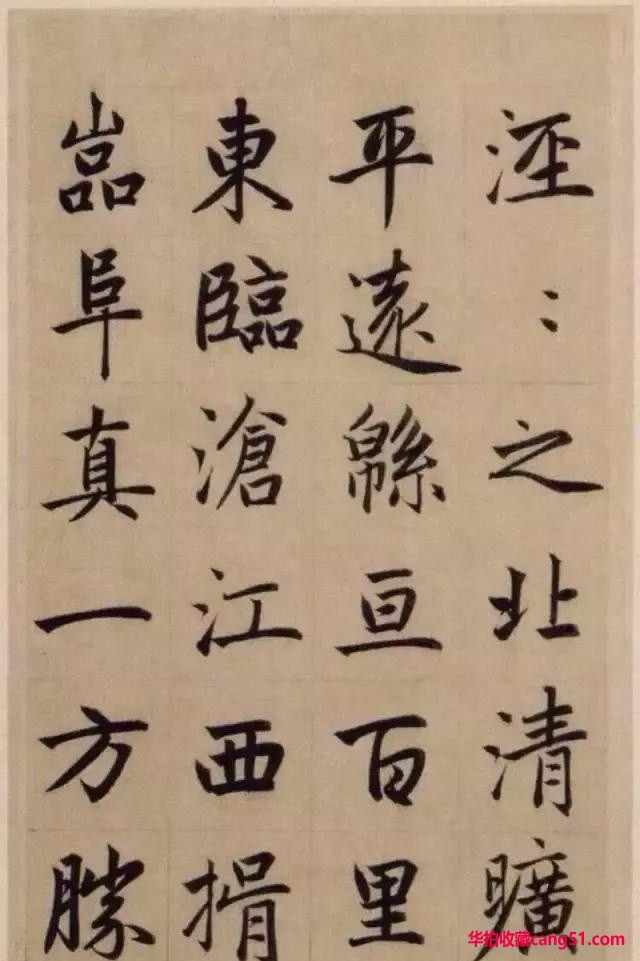 涇〻之北清曠
平遠緜亘百里
東臨滄江西揖
嵓阜真一方勝
华拍收藏cang51.com